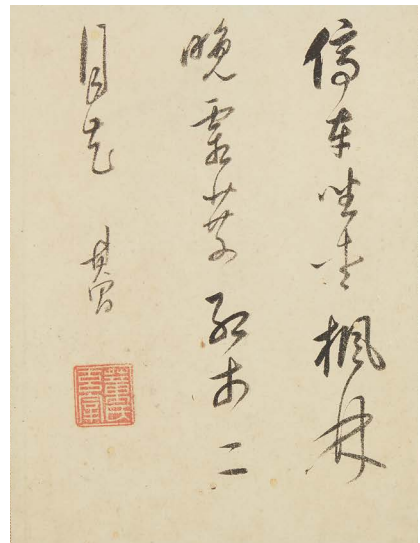 停車坐愛楓林
晚霜葉紅於二
月花 其昌